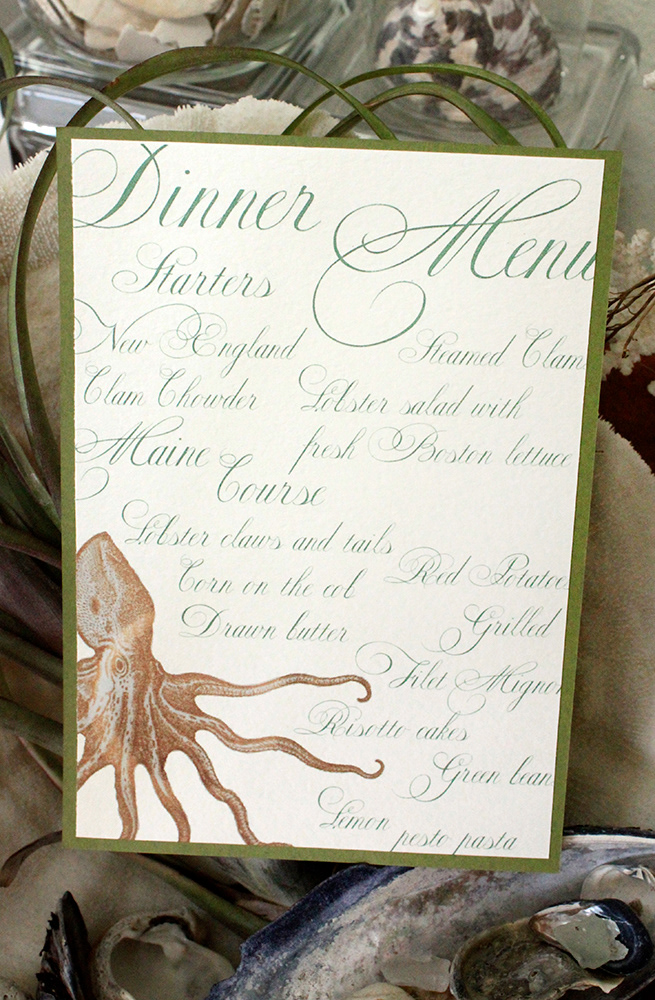 Dinner Menu
Starters
New England
Clam Chowder
Steamed Clam
Lobster salad with
fresh Boston lettuce
Maine
Course
Lobster claws and tails
Corn on the cob
Drawn butter
Red Potatoes
Grilled
Filet Mignon
Risotto cakes
Green bean
Lemon
pesto pasta